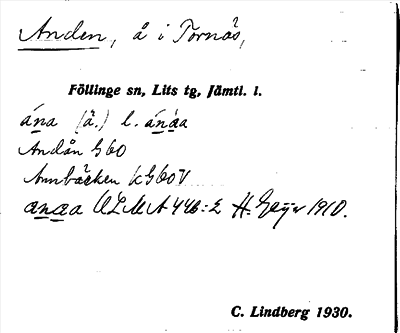 Anden, å i Tornäs,
Föllinge sn, Lits tg, Jämtl. l.
ána (ä.) l. ánáa
Andån G60
Annbäcken kG60V
anaa ULMA 446:2 H. Geijer 1910.
C. Lindberg 1930.